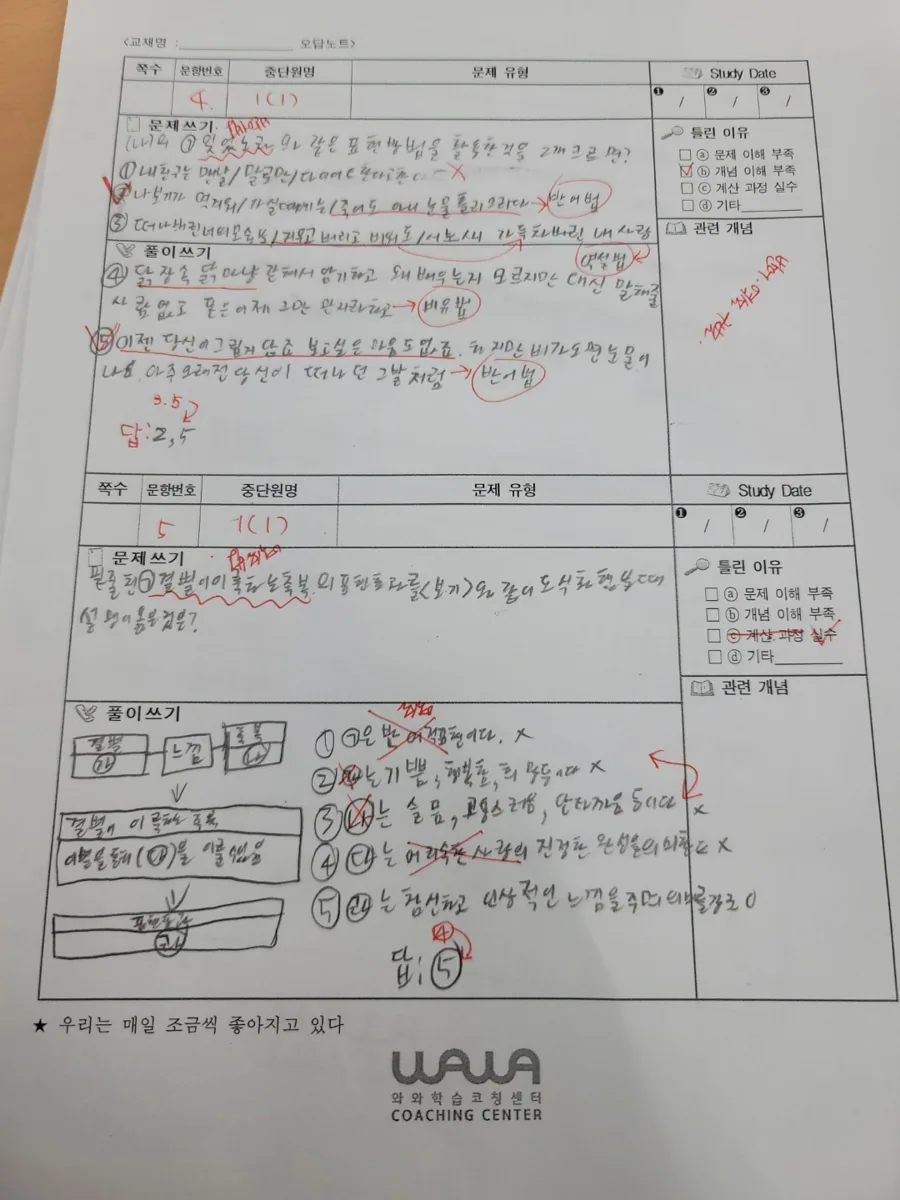 <교재명 : 오답노트>
쪽수 문항번호 중단원명 문제 유형 Study Date
4. 1(1)
❶ / ❷ / ❸ /
문제쓰기
(나)의 ㉠ 와 같은 표현 방법을 활용한 것을 2개 고르면?
① 내 친구는 맨날/말로만/다이어트 한다고 한다 - X
② 나 보기가 역겨워/가실 때에는/죽어도 아니 눈물 흘리오리다 → 반어법
③ 떠나버린 너의 모습을/지우고 버리고 비워도/어느새 가득 차버린 내 사랑
역설법
틀린 이유
ⓐ 문제 이해 부족
ⓑ 개념 이해 부족
ⓒ 계산 과정 실수
ⓓ 기타
관련 개념
풀이쓰기
④ 닭장속 닭 마냥 갇혀서 암기하고 왜 배우는지 모르지만 대신 말해줄
사람 없고 꿈은 어제 그만 → 비유법
⑤ 이젠 당신이 그립지 않죠 보고싶은 마음도 없죠. 하지만 비가 오면 눈물이
나요. 아주 오래전 당신이 떠나던 그날처럼 → 반어법
3.5
답: 2, 5
쪽수 문항번호 중단원명 문제 유형 Study Date
5 1(1)
❶ / ❷ / ❸ /
문제쓰기
㉠ 결별이 이룩하는 축복의 표현 효과를 <보기>와 같이 도식화 했을 때
설명이 옳은 것은?
틀린 이유
ⓐ 문제 이해 부족
ⓑ 개념 이해 부족
ⓒ 계산 과정 실수
ⓓ 기타
관련 개념
풀이쓰기
결별 느낌 축복
㉮ ㉯
결별이 이룩하는 축복
이별을 통해 (㉰)을 이룰 수 있음
표현 효과
㉱
① ㉠은 반어적 표현이다. X
② ㉮는 기쁨, 행복함, 희망 등이다 X
③ ㉯는 슬픔, 고통스러움, 안타까움 등이다 X
④ ㉰는 어리숙한 사랑의 진정한 완성을 의미한다 X
⑤ ㉱는 참신하고 인상적인 느낌을 주며 의미를 강조 O
④
답: ⑤
★ 우리는 매일 조금씩 좋아지고 있다
WAWA
와와학습코칭센터
COACHING CENTER